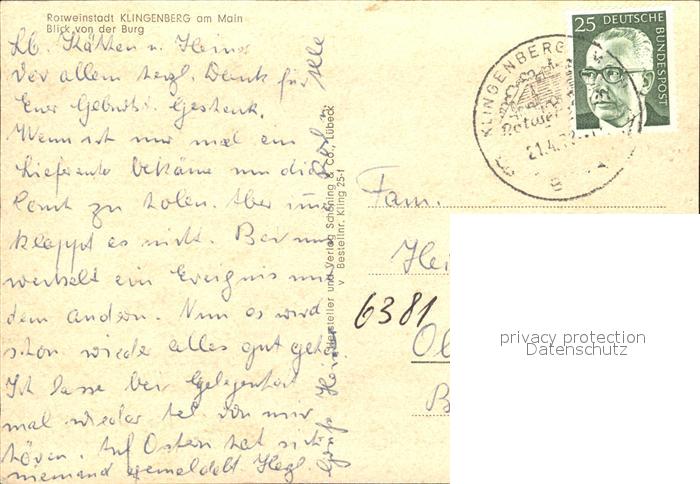 Rotweinstadt KLINGENBERG am Main
Blick von der Burg
Lb. Käthen u. Heinz
Vor allem herzl. Dank für
Euer Geburts. Geschenk.
Wenn ich nur mal ein
Lieferauto bekäme um die
zu holen. Aber
klappt es nicht. Bei uns
wechselt ein Ereignis mit
dem andern. Nun es wird
schon wieder alles gut gehen
Ich lasse bei Gelegenheit
mal wieder tel. von mir
hören. Auf Ostern hat sich
niemand gemeldet. Herzl.
Grüße
Alle
Hersteller und Verlag Schöning & Co., Lübeck
v Bestellnr. Kling 25-f
25 DEUTSCHE
BUNDESPOST
KLINGENBERG
21.4.
Fam.
Hei
6381
Ol
B
privacy protection
Datenschutz